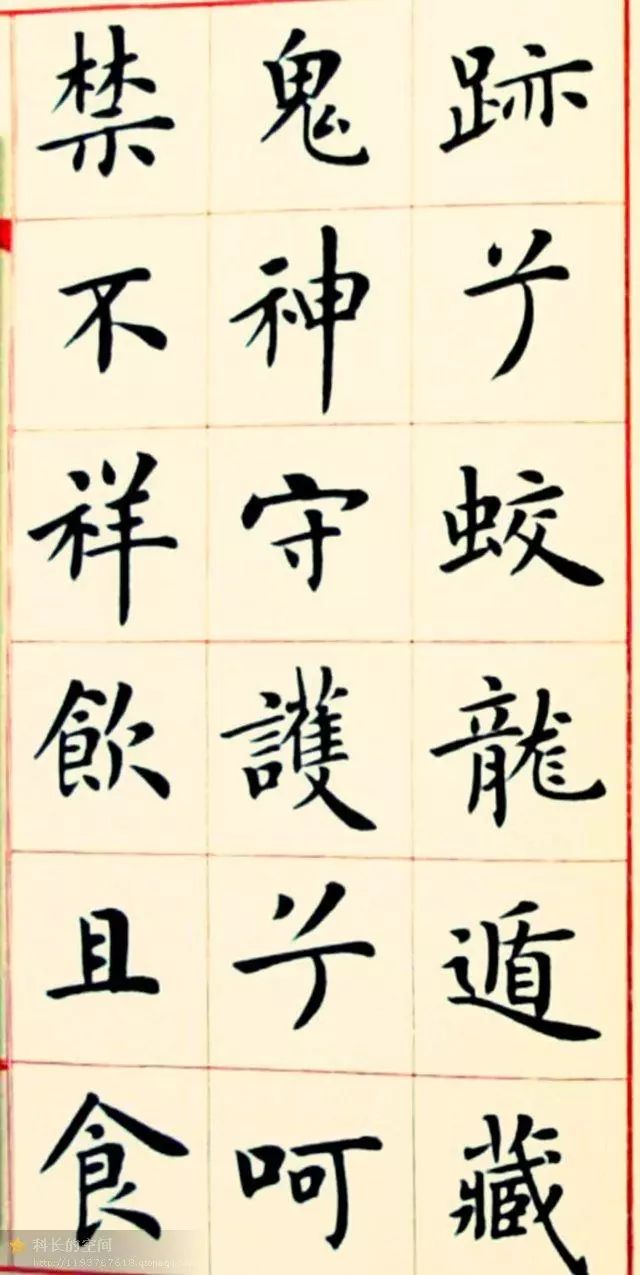 跡兮蛟龍遁藏
鬼神守護兮呵
禁不祥飲且食
科长的空间
http://1193767618.qzone.qq.com